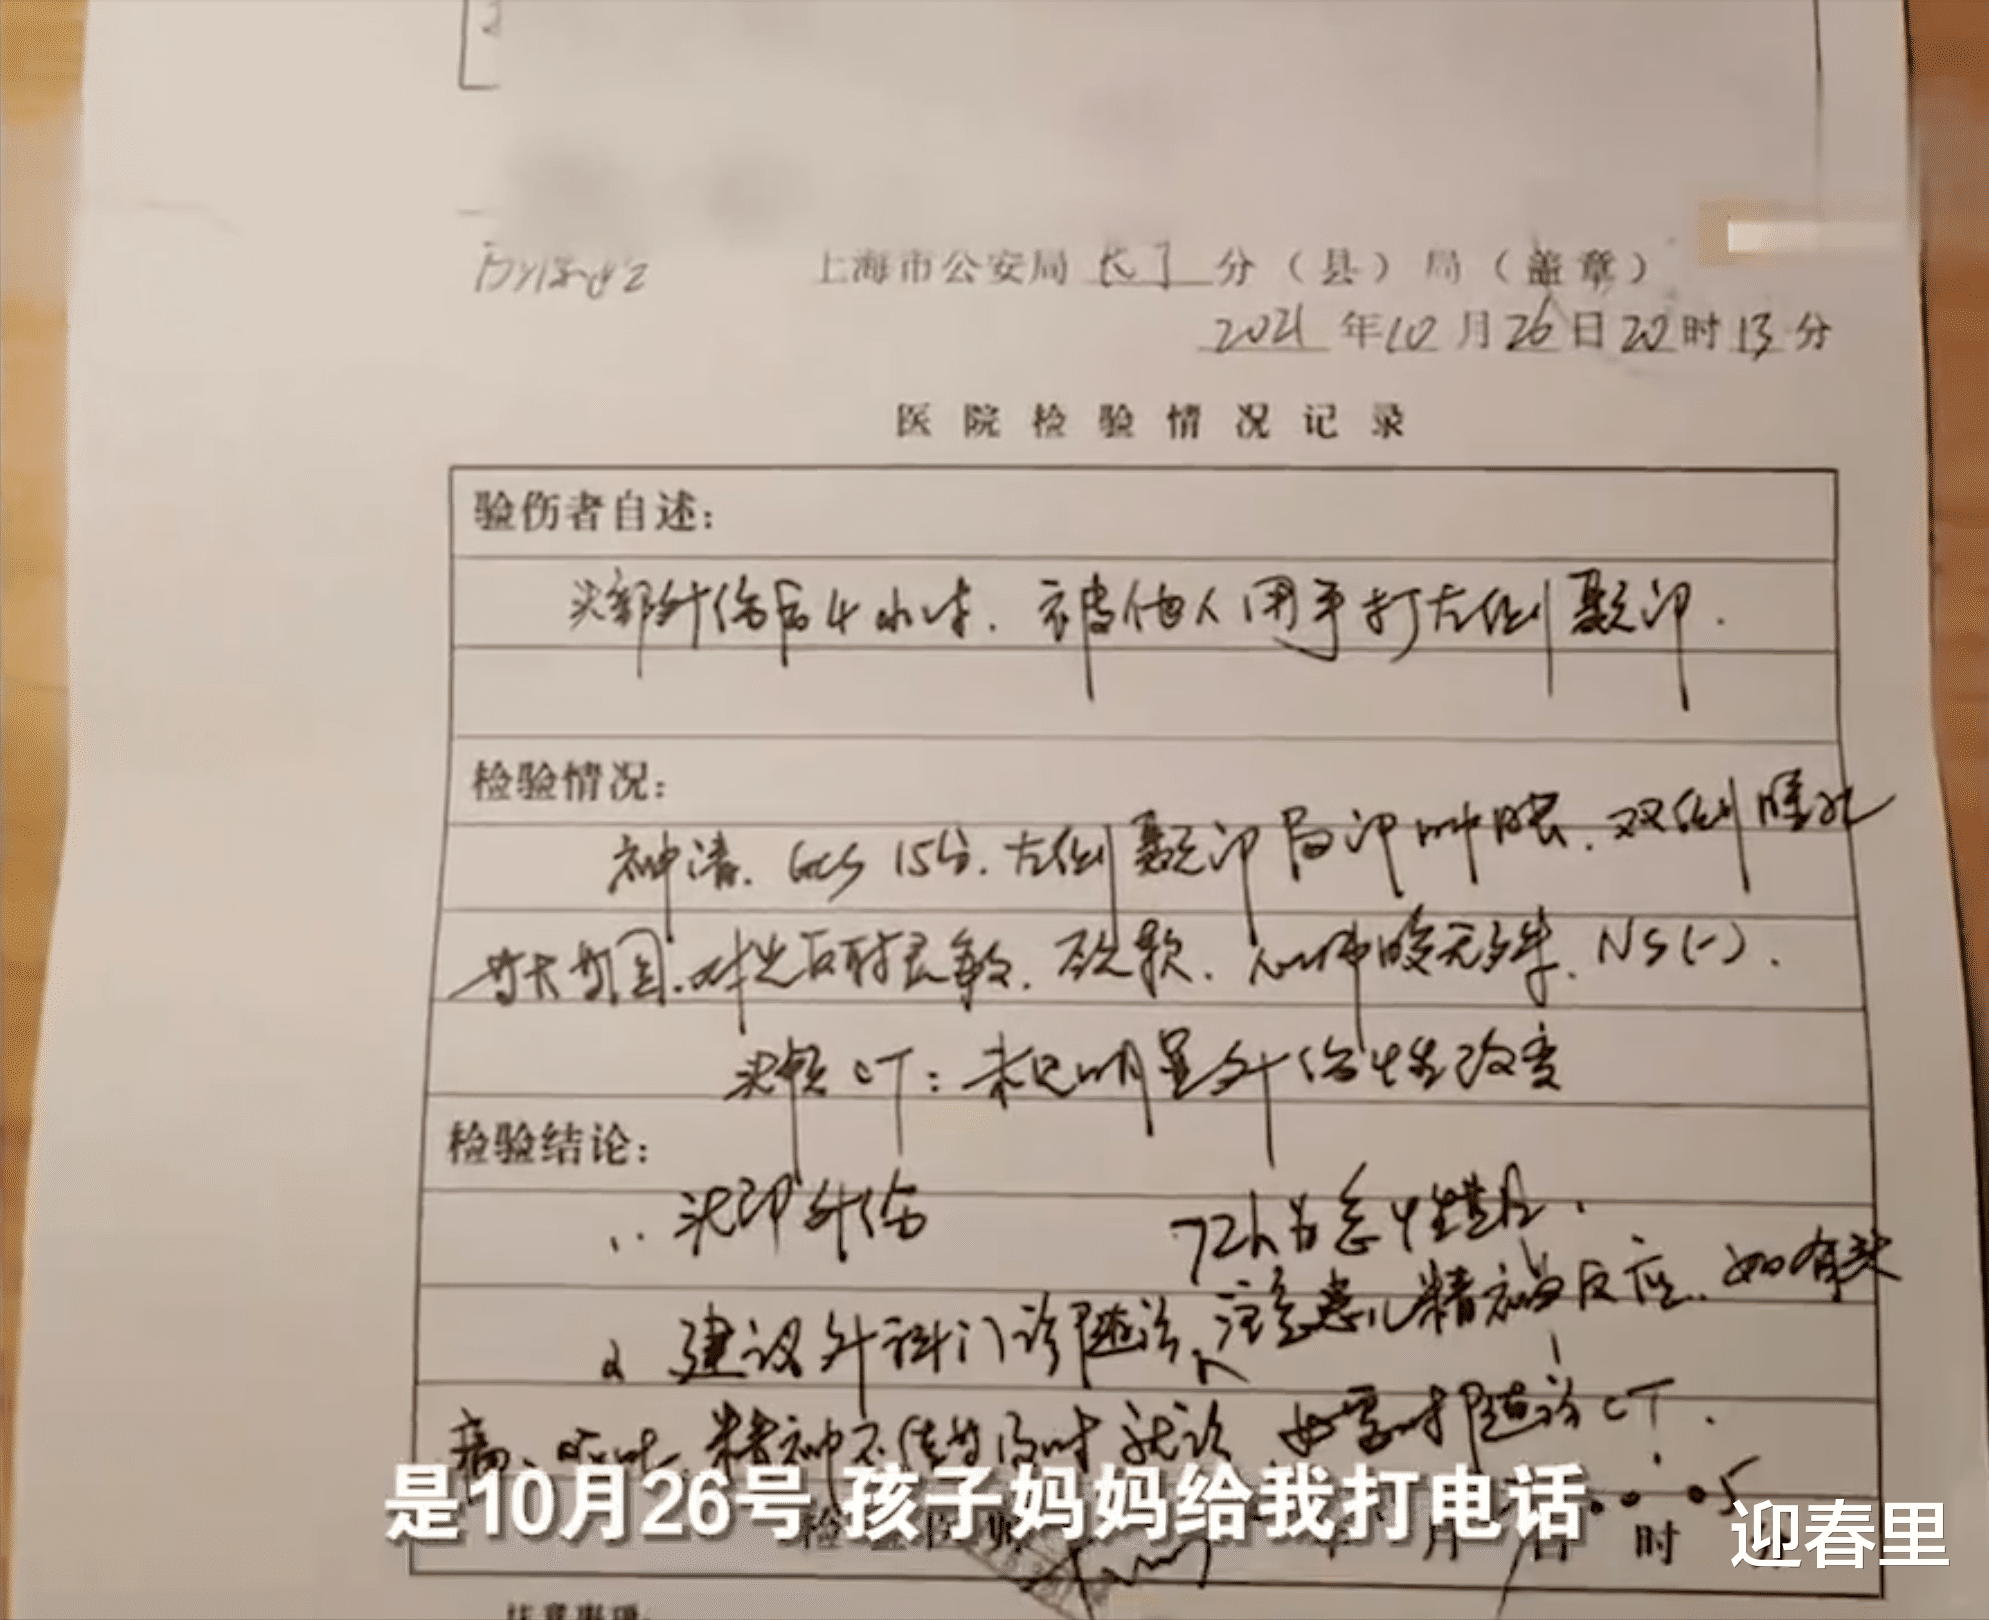 上海市公安局长宁分（县）局（盖章）
2021年10月26日20时13分
医院检验情况记录
验伤者自述：
头部外伤后4小时．被他人用手打左侧颞部．
检验情况：
神清．GCS 15分．左侧颞部局部肿胀．双侧瞳孔
等大等圆．对光反射灵敏．颈软．心肺腹无异常．NS(-)．
头颅CT：未见明显外伤性改变
检验结论：
1．头部外伤
72h为急性期．
2 建议外科门诊随访、注意患儿精神反应．如有头
痛、呕吐、精神不佳等及时就诊、必要时随访CT．
是10月26号 孩子妈妈给我打电话
检验医师
月 日 时
迎春里
注意事项：